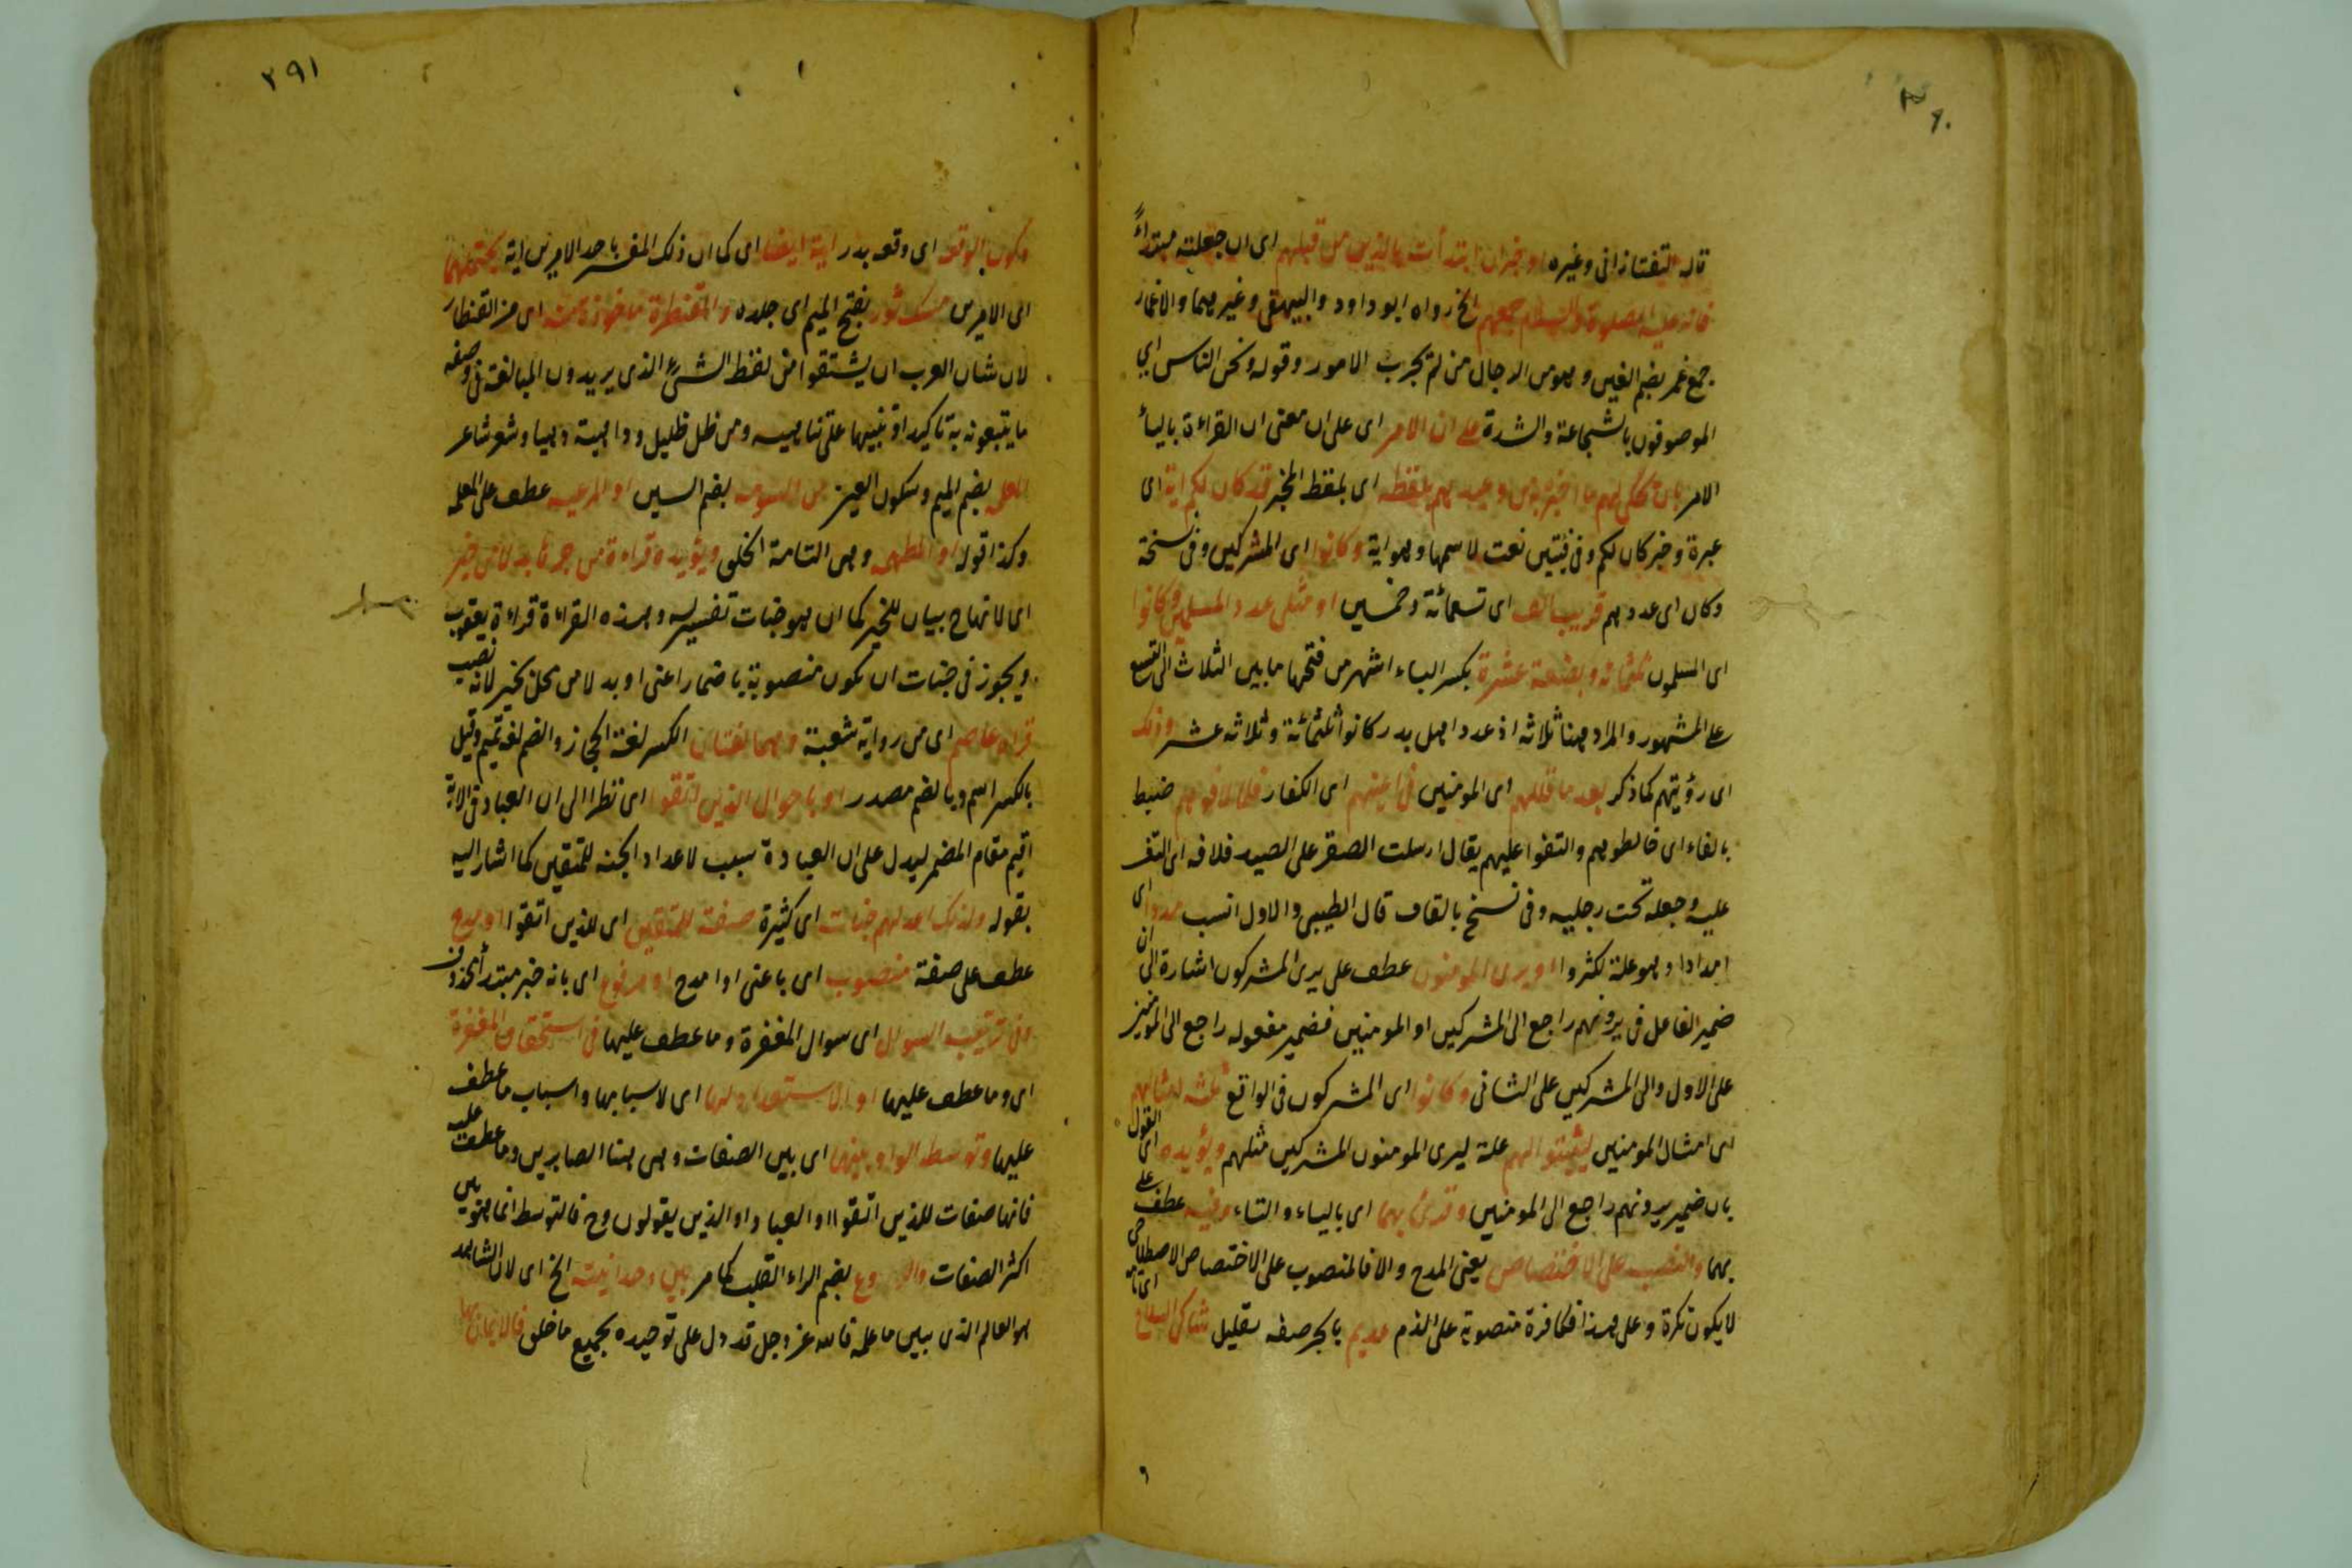 ٢٩١
قاله التفتازانى وغيره او خبر ان ابتدأت بالذين من قبلهم اى ان جعلته مبتدأً
فانه عليه الصلوة والسلام جمعهم الخ رواه ابو داود والبيهقى وغيرهما والاغمار
جمع غمر بضم الغين وهو من الرجال من لم يجرب الامور وقوله ونحن الناس اى
الموصوفون بالشجاعة والشدة على ان الامر اى على ان معنى ان القراءة بالياء
الامر بان يحكى لهم ما اخبره به من وعيدهم بلفظه اى بلفظ المخبر قد كان لكم اية اى
عبرة وخبر كان لكم وفى فئتين نعت لاسمها وهو اية وكانوا اى المشركين وفى نسخة
وكان اى عددهم قريب الف اى تسعمائة وخمسين او مثلى عدد المسلمين وكانوا
اى المسلمون ثلثمائة وبضعة عشرة بكسر الباء اشهر من فتحها ما بين الثلاث الى التسع
على المشهور والمراد هنا ثلاثه اذ عدد اهل بدر كانوا ثلثمائة وثلاثه عشر وذلك
اى رؤيتهم كما ذكر بعد ما قللهم اى المومنين فى اعينهم اى الكفار فلما لاقوهم ضبط
بالفاء اى خالطوهم والتفوا عليهم يقال ارسلت الصقر على الصيد فلافه اى التف
عليه وجعله تحت رجليه وفى نسخ بالقاف قال الطيبى والاول انسب مددا اى
امدادا وهو علة لكثروا او يرى المومنون عطف على يرى المشركون اشارة الى ان
ضمير الفاعل فى يرونهم راجع الى المشركين او المومنين فضمير مفعوله راجع الى المومنين
على الاول والى المشركين على الثانى وكانوا اى المشركون فى الواقع ثلثة امثالهم
اى امثال المومنين ليثبتوا لهم علة ليرى المومنون المشركين مثلهم ويؤيده اى القول
بان ضمير يرونهم راجع الى المومنين وقرئ بهما اى بالياء والتاء وفيه عطف على
بهما والنصب على الاختصاص يعنى المدح والا فالمنصوب على الاختصاص الاصطلاحى
لا يكون نكرة وعلى هذا فكافرة منصوبة على الذم عديم بالجر صفه لقليل شاكى السلاح اى تام
وكون الوقعة اى وقعه بدر اية ايضا اى كما ان ذلك المفسر باحد الامرين اية يحتملهما
اى الامرين مسك ثور بفتح الميم اى جلده والمقنطرة ماخوذة منه اى من القنطار
لان شان العرب ان يشتقوا من لفظ الشئ الذى يريدون المبالغة فى وصفه
ما يتبعونه به تاكيدا وتنبيها على تناهيه ومن ظل ظليل وداهية دهيا وشعر شاعر
المعلمه بضم الميم وسكون العين من السومه بضم السين او المرعيه عطف على المعلمه
وكذا قوله او المطهمه وهى التامة الخلق ويؤيده قراءة من جرها بدلا من خير
اى لانهاج بيان للخير كما ان هو جنات تفسير له وهذه القراءة قراءة يعقوب
ويجوز فى جنات ان تكون منصوبة باضمار اعنى او بدلا من محل بخير لانه نصب
قراه عاصم اى من رواية شعبة وهما لغتان الكسر لغة الحجاز والضم لغة تميم وقيل
بالكسر اسم وبالضم مصدر او باحوال الذين اتقوا اى نظرا الى ان العباد فى الاية
اقيم مقام المضمر ليدل على ان العبادة سبب لاعداد الجنه للمتقين كما اشار اليه
بقوله ولذلك اعد لهم جنات اى كثيرة صفة للمتقين اى للذين اتقوا او مدح
عطف على صفة منصوب اى باعنى او امدح او مرفوع اى بانه خبر مبتدأ محذوف
وفى ترتيب السوال اى سوال المغفرة وما عطف عليها فى استحقاق المغفرة
اى وما عطف عليها او الاستعداد لها اى لاسبابها واسباب ما عطف
عليها وتوسط الواو بينها اى بين الصفات وهى هنا الصابرين وما عطف عليه
فانها صفات للذين اتقوا او العباد او الذين يقولون وح فالتوسط انما هو بين
اكثر الصفات والروع بضم الراء القلب كما مر بين وحدانيته الخ اى لان الشاهد
هو العالم الذى يبين ما علمه فالله عز وجل قد دل على توحيده بجميع ما خلق فالايمان بها